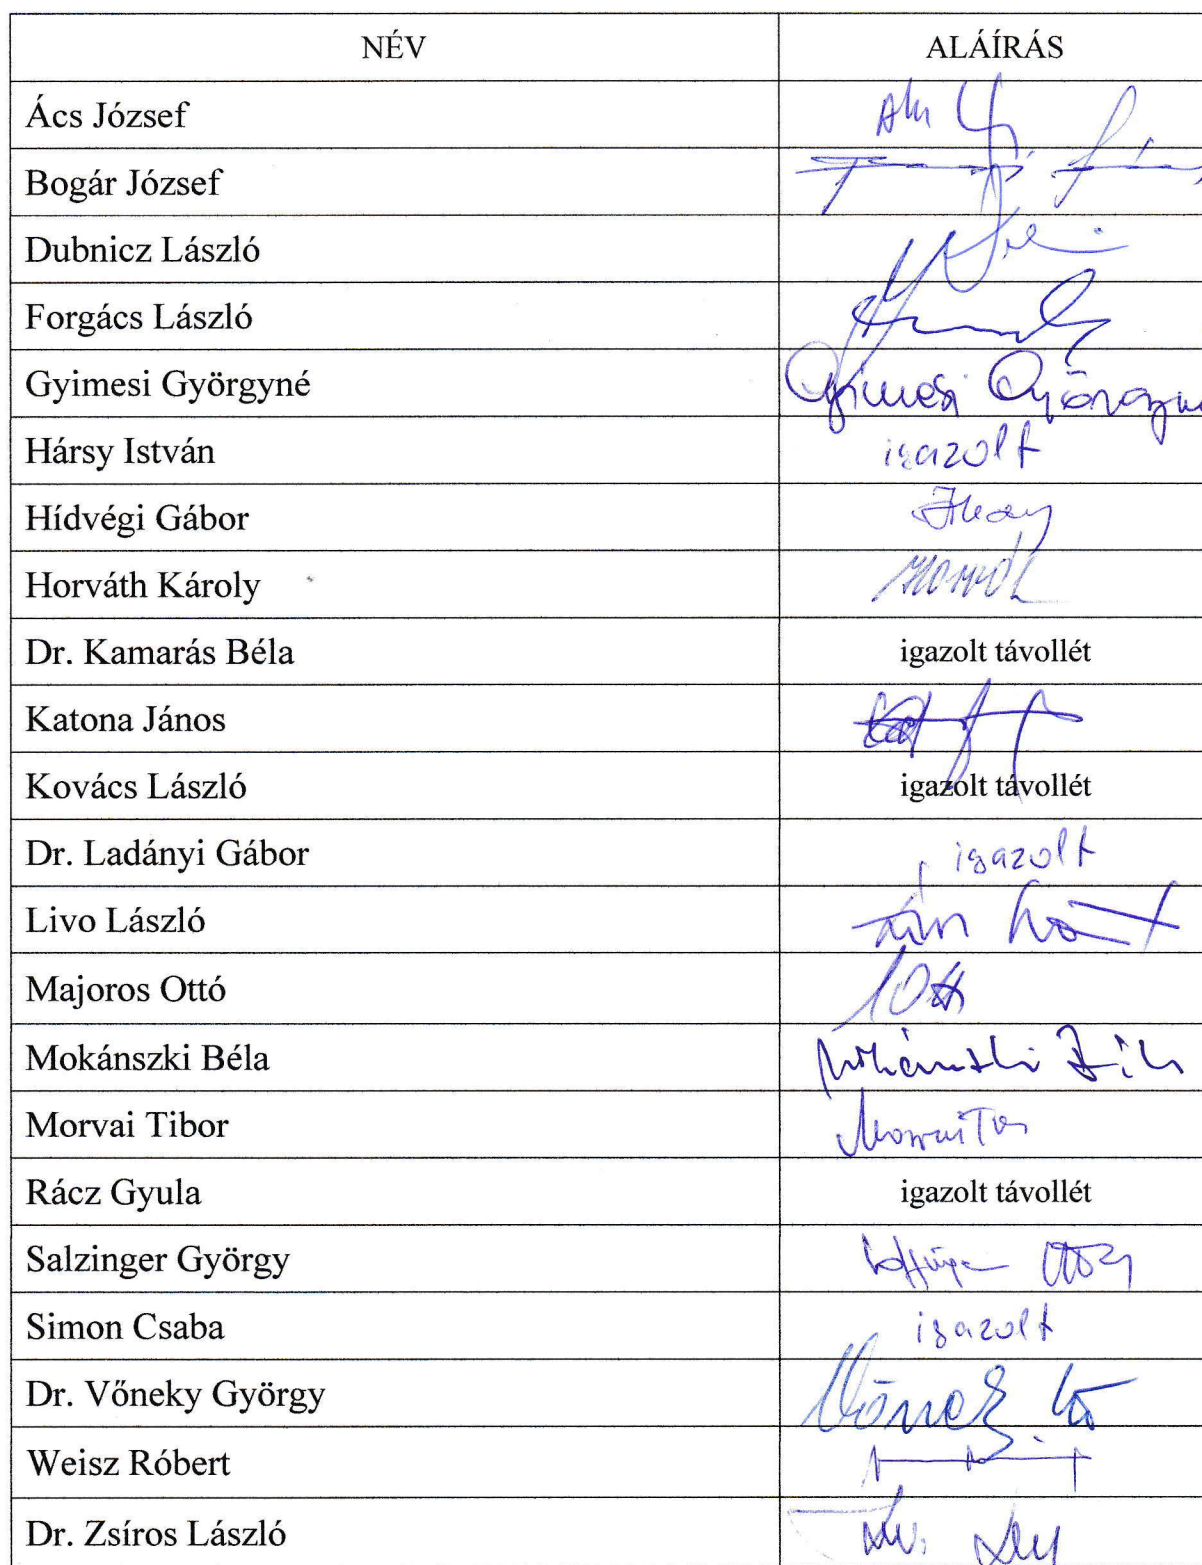 NÉV ALÁÍRÁS
Ács József
Bogár József
Dubnicz László
Forgács László
Gyimesi Györgyné Gyimesi Györgyné
Hársy István igazolt
Hídvégi Gábor
Horváth Károly
Dr. Kamarás Béla igazolt távollét
Katona János
Kovács László igazolt távollét
Dr. Ladányi Gábor igazolt
Livo László
Majoros Ottó
Mokánszki Béla Mokánszki Béla
Morvai Tibor
Rácz Gyula igazolt távollét
Salzinger György
Simon Csaba igazolt
Dr. Vőneky György
Weisz Róbert
Dr. Zsíros László